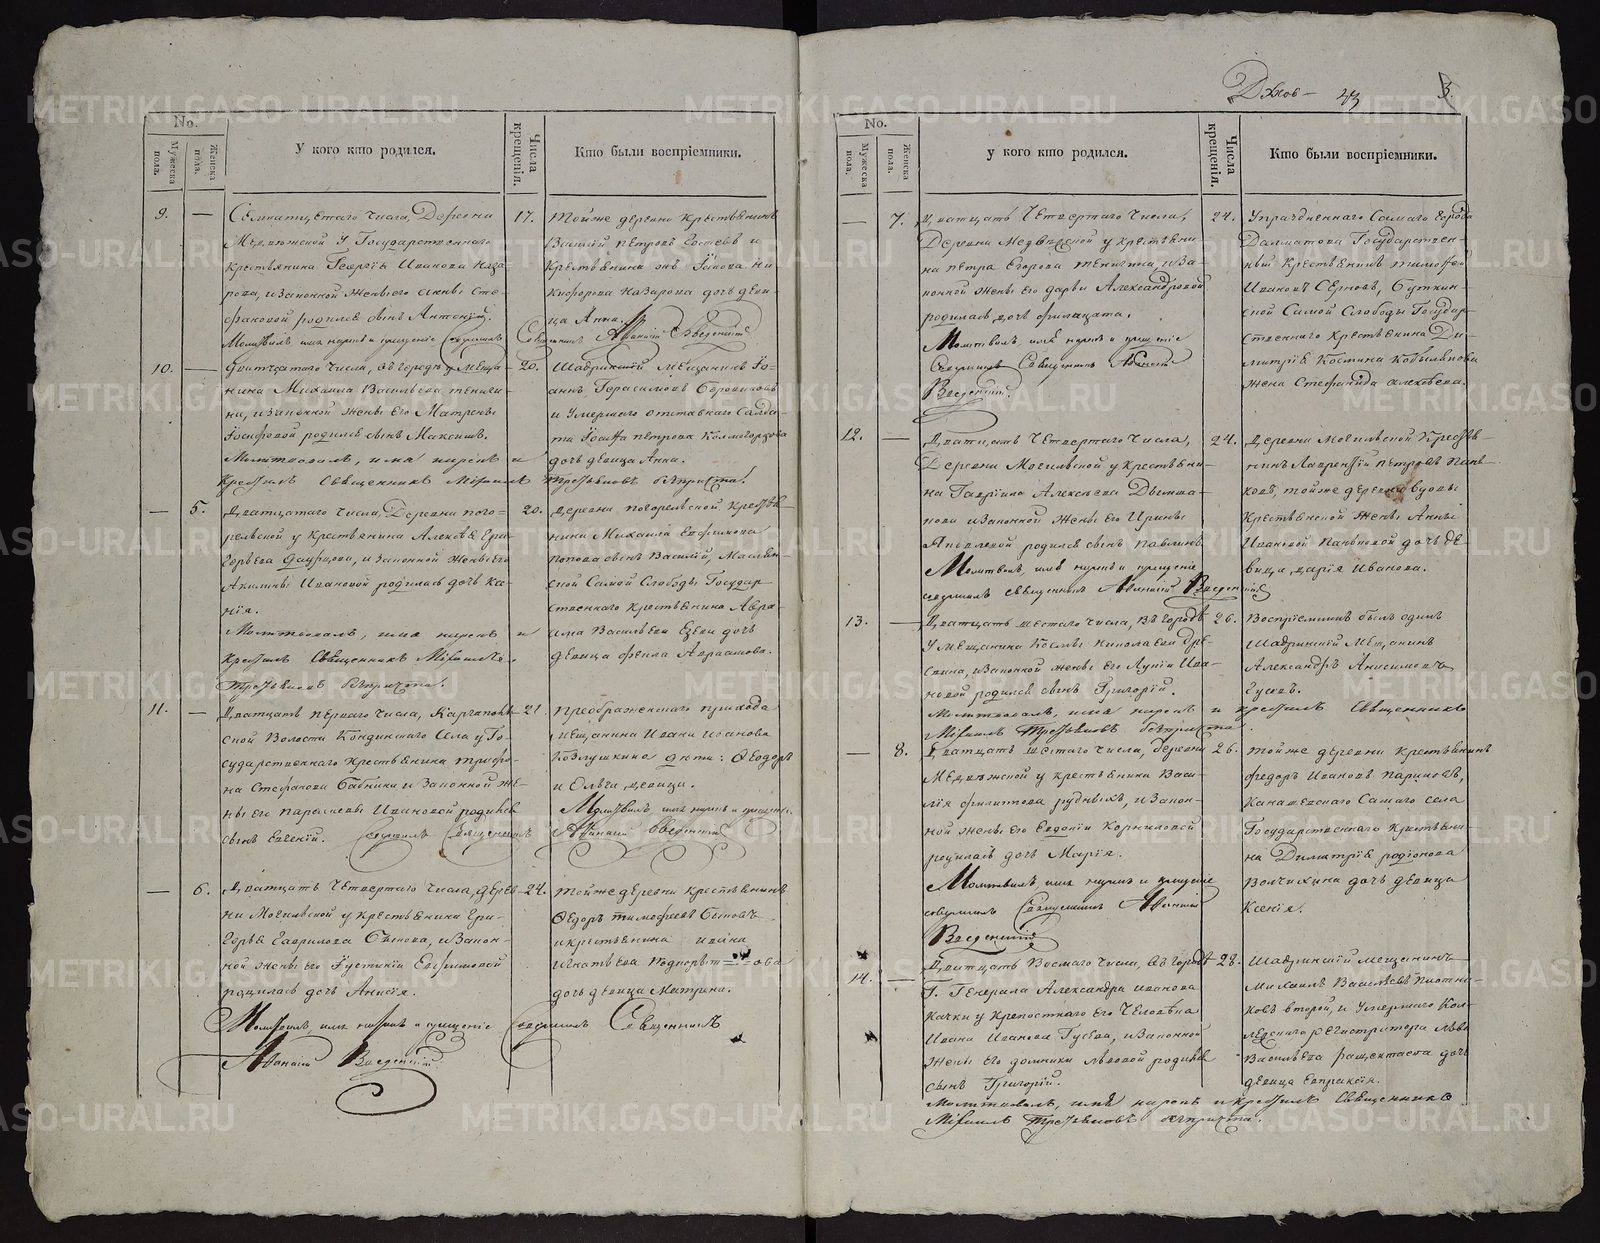 Духов— 43 3.
No.
Мужеска пола.
Женска пола.
У кого кто родился.
Числа крещенія.
Кто были воспріемники.
9. — Семнатцетаго числа, Деревни
Медвѣжской у Государственнаго
крестьянина Георгія Иванова Наза
рова, и Законной жены его Анны Сте
фановой родился сынъ Антоній.
Молитвилъ имя нарекъ и крещеніе совершилъ Священникъ Афанасій Введенскій
17. Той же деревни крестьянинъ
Василій Петровъ и
Крестьянина жъ Іакова Ни
кифорова Назарова дочь деви
ца Анна.
10. — Дватцатаго числа, въ городѣ у Меща
нина Михаила Васильева
и Законной жены его Матрены
Іосифовой родился сынъ Максимъ.
Молитвовалъ, имя нарекъ и
Крестилъ Священникъ Михаилъ Третьяковъ безъ причта.
20. Шадринскій Мещанинъ Іо-
аннъ Герасимовъ
и Умершаго отставнаго Солда-
та Іосифа Петрова Колмогорцова
дочь девица Анна.
— 5. Дватцатаго числа, Деревни Пого-
рельской у Крестьянина Алексѣя Гри
горьева и Законной жены его
Акилины Ивановой родилась дочь Ка-
нія.
Молитвовалъ, имя нарекъ и
Крестилъ Священникъ Михаилъ
Третьяковъ безъ причта.
20. Деревни Погорельской, Крестья
нина Михаила Евфимова
Попова сынъ Василій, Маслян-
ской Самой Слободы Государ
ственнаго крестьянина Авра-
ама Васильева дочь
девица Фекла Авраамова.
11. — Дватцать перваго числа, Каргаполь
ской Волости Кондинскаго Села у Го-
сударственнаго Крестьянина Трифо-
на Стефанова Бабкина и Законной же-
ны его Параскевы Ивановой родился
сынъ Евгеній. совершилъ Священникъ
21. Преображенскаго прихода
Мещанина Ивана Иванова
Козлушкина дети: Ѳеодоръ
и Ольга девица.
Молитвилъ имя нарекъ и крещеніе
Афанасій Введенскій
— 6. Дватцать Четвертаго числа, дерев
ни Могилевской у крестьянина Гри-
горья Гаврилова Сынова, и Закон-
ной жены его Іустиніи Евфимовой
родилась дочь Анисія.
Молитвилъ, имя нарекъ и крещеніе совершилъ Священникъ
Афанасій Введенскій
24. Той же деревни крестьянинъ
Ѳедоръ Тимофеевъ
и крестьянина Ивана
Игнатьева
дочь девица Матрина.
No.
Мужеска пола.
Женска пола.
У кого кто родился.
Числа крещенія.
Кто были воспріемники.
— 7. Дватцать Четвертаго числа,
Деревни Медвѣжской у крестьяни-
на Петра Егорова и За-
конной жены его Дарьи Александровой
родилась дочь Филицата.
Молитвилъ, имя нарекъ и крещеніе
совершилъ Священникъ Афанасій
Введенскій.
24. Упраздненнаго Самаго города
Далматова Государствен-
ный Крестьянинъ Тимофей
Ивановъ Серговъ, Буткин-
ской Самой Слободы Государ-
ственнаго Крестьянина Ди-
митрія Космина Кобылянова
жена Стефанида Алексѣева.
12. — Дватцать Четвертаго числа,
Деревни Могилевской у крестьяни-
на Гавріила Алексѣева
и Законной жены его Ирины
Яковлевой родился сынъ Павлинъ.
Молитвилъ, имя нарекъ и крещеніе
совершилъ Священникъ Афанасій Введенскій
24. Деревни Могилевской Крестья-
нинъ Лаврентій Петровъ Пань-
ковъ, той же деревни вдовы
Крестьянской жены Анны
Ивановой Паньковой дочь де
вица, Дарія Иванова.
13. — Дватцать шестаго числа, въ городѣ
у Мещанина Космы Николаева
и Законной жены его Лукіи Ива
новой родился сынъ Григорій.
Молитвовалъ, имя нарекъ и крестилъ Священникъ
Михаилъ Третьяковъ безъ причта.
26. Воспріемникъ былъ одинъ
Шадринскій Мещанинъ
Александръ Анисимовъ
Гусевъ.
— 8. Дватцать шестаго числа, деревни
Медвѣжской у крестьянина Васи-
лія Филипова Рудныхъ, и Закон-
ной жены его Евдокіи Корниловой
родилась дочь Марія.
Молитвилъ, имя нарекъ и крещеніе
совершилъ Священникъ Афанасій
Введенскій
26. Той же деревни крестьянинъ
Федоръ Ивановъ Париковъ,
Канашевскаго Самаго села
Государственнаго крестьяни-
на Димитрія Родіонова
Волчихина дочь девица
Ксенія.
14. — Дватцать Восмаго числа, въ городѣ
Г. Генерала Александра Иванова
Качки у Крепостнаго его Человѣка
Ивана Иванова Гусева, и Законной
жены его Домники Львовой родился
сынъ Григорій.
Молитвовалъ, имя нарекъ и крестилъ Священникъ
Михаилъ Третьяковъ безъ причта.
28. Шадринскій мещанинъ
Михаилъ Васильевъ Плотни-
ковъ второй, и Умершаго Кол-
лежскаго регистратора Льва
Васильева дочь
девица Евпраксія.
METRIKI.GASO-URAL.RU